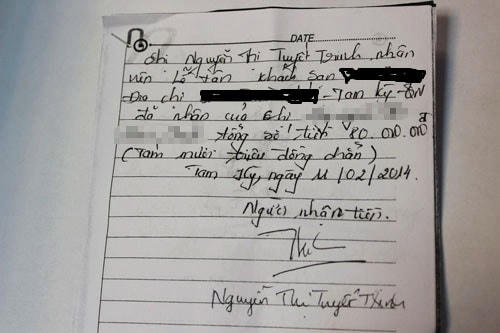 DATE
Chị Nguyễn Thị Tuyết Trinh, nhân
viên Lễ tân khách sạn
Địa chỉ - Tam kỳ - QN
đã nhận của chị
tổng số tiền 80.000.000đ
(Tám mươi triệu đồng chẵn)
Tam Kỳ, ngày 11/02/2014.
Người nhận tiền.
Nguyễn Thị Tuyết Trinh